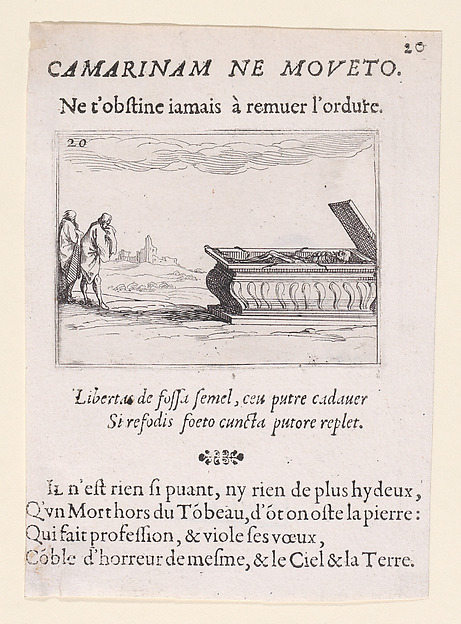 20
CAMARINAM NE MOVETO.
Ne t'obſtine iamais à remuer l'ordure.
20
Libertas de foſſa ſemel, ceu putre cadauer
Si refodis foeto cuncta putore replet.
IL n'eſt rien ſi puant, ny rien de plus hydeux,
Q'vn Mort hors du Tõbeau, d'õt on oſte la pierre:
Qui fait profeſſion, & viole ſes vœux,
Cõble d'horreur de meſme, & le Ciel & la Terre.